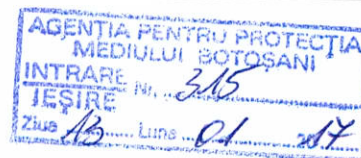 AGENȚIA PENTRU PROTECȚIA
MEDIULUI BOTOȘANI
INTRARE
IEȘIRE Nr. 315
Ziua 13 Luna 01 2017